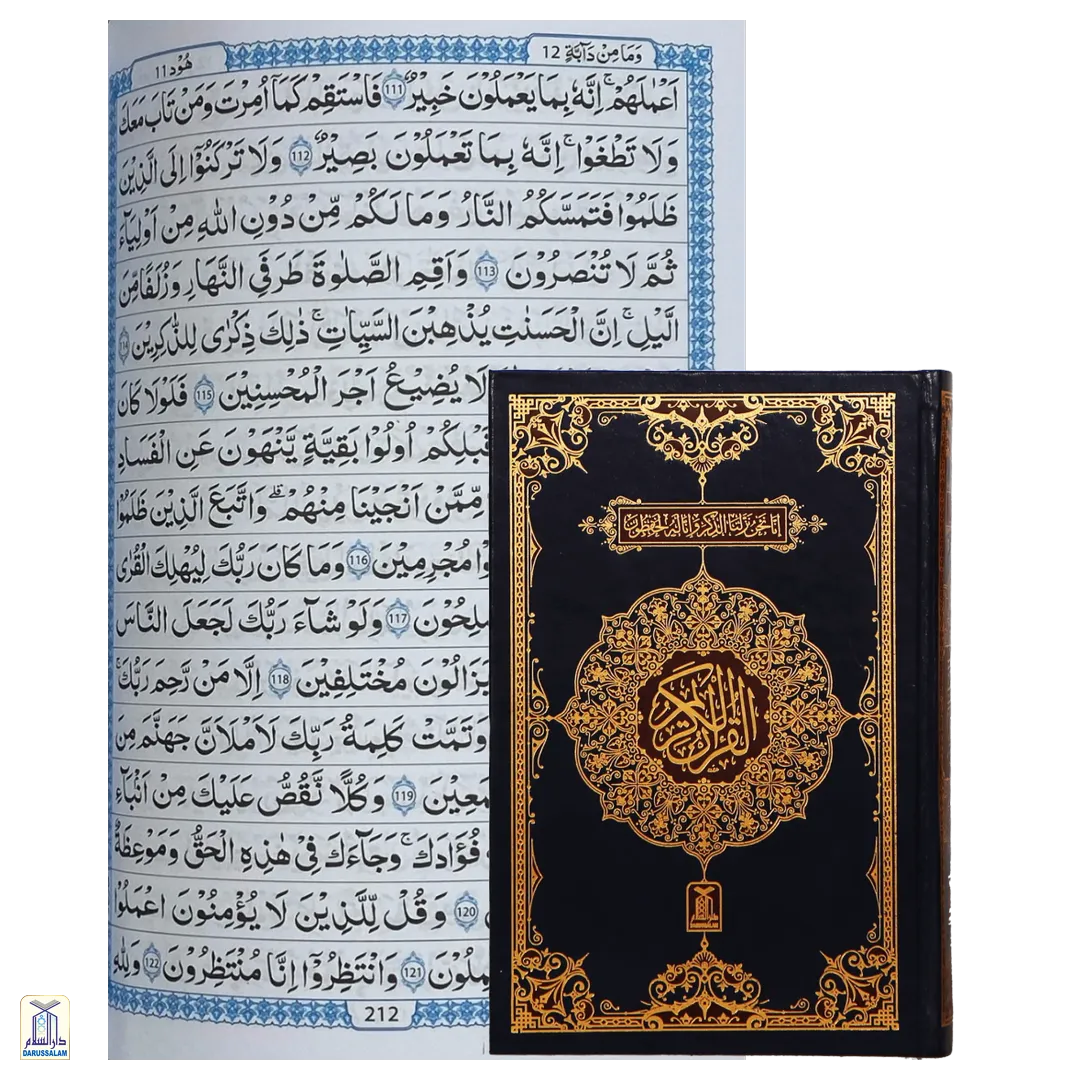 هُوْد 11
وَمَا مِنْ دَآبَّةٍ 12
اَعْمٰلَهُمْ ۚ اِنَّهٗ بِمَا يَعْمَلُوْنَ خَبِيْرٌ 111 فَاسْتَقِمْ كَمَآ اُمِرْتَ وَمَنْ تَابَ مَعَكَ
وَلَا تَطْغَوْا ۚ اِنَّهٗ بِمَا تَعْمَلُوْنَ بَصِيْرٌ 112 وَلَا تَرْكَنُوْٓا اِلَى الَّذِيْنَ
ظَلَمُوْا فَتَمَسَّكُمُ النَّارُ وَمَا لَكُمْ مِّنْ دُوْنِ اللّٰهِ مِنْ اَوْلِيَآءَ
ثُمَّ لَا تُنْصَرُوْنَ 113 وَاَقِمِ الصَّلٰوةَ طَرَفَيِ النَّهَارِ وَزُلَفًا مِّنَ
الَّيْلِ ۚ اِنَّ الْحَسَنٰتِ يُذْهِبْنَ السَّيِّاٰتِ ۚ ذٰلِكَ ذِكْرٰى لِلذّٰكِرِيْنَ 114
لَا يُضِيْعُ اَجْرَ الْمُحْسِنِيْنَ 115 فَلَوْلَا كَانَ
قَبْلِكُمْ اُولُوْا بَقِيَّةٍ يَّنْهَوْنَ عَنِ الْفَسَادِ
مِّمَّنْ اَنْجَيْنَا مِنْهُمْ ۗ وَاتَّبَعَ الَّذِيْنَ ظَلَمُوْا
مُجْرِمِيْنَ 116 وَمَا كَانَ رَبُّكَ لِيُهْلِكَ الْقُرٰى
117 وَلَوْ شَآءَ رَبُّكَ لَجَعَلَ النَّاسَ
يَزَالُوْنَ مُخْتَلِفِيْنَ 118 اِلَّا مَنْ رَّحِمَ رَبُّكَ ۚ
وَتَمَّتْ كَلِمَةُ رَبِّكَ لَاَمْلَاَنَّ جَهَنَّمَ مِنَ
119 وَكُلًّا نَّقُصُّ عَلَيْكَ مِنْ اَنْۢبَآءِ
فُؤَادَكَ ۚ وَجَآءَكَ فِيْ هٰذِهِ الْحَقُّ وَمَوْعِظَةٌ
120 وَقُلْ لِّلَّذِيْنَ لَا يُؤْمِنُوْنَ اعْمَلُوْا
121 وَانْتَظِرُوْا اِنَّا مُنْتَظِرُوْنَ 122 وَلِلّٰهِ
212
إنا نحن نزلنا الذكر وإنا له لحافظون
القرآن الكريم
دار السلام
DARUSSALAM
دار السلام
DARUSSALAM